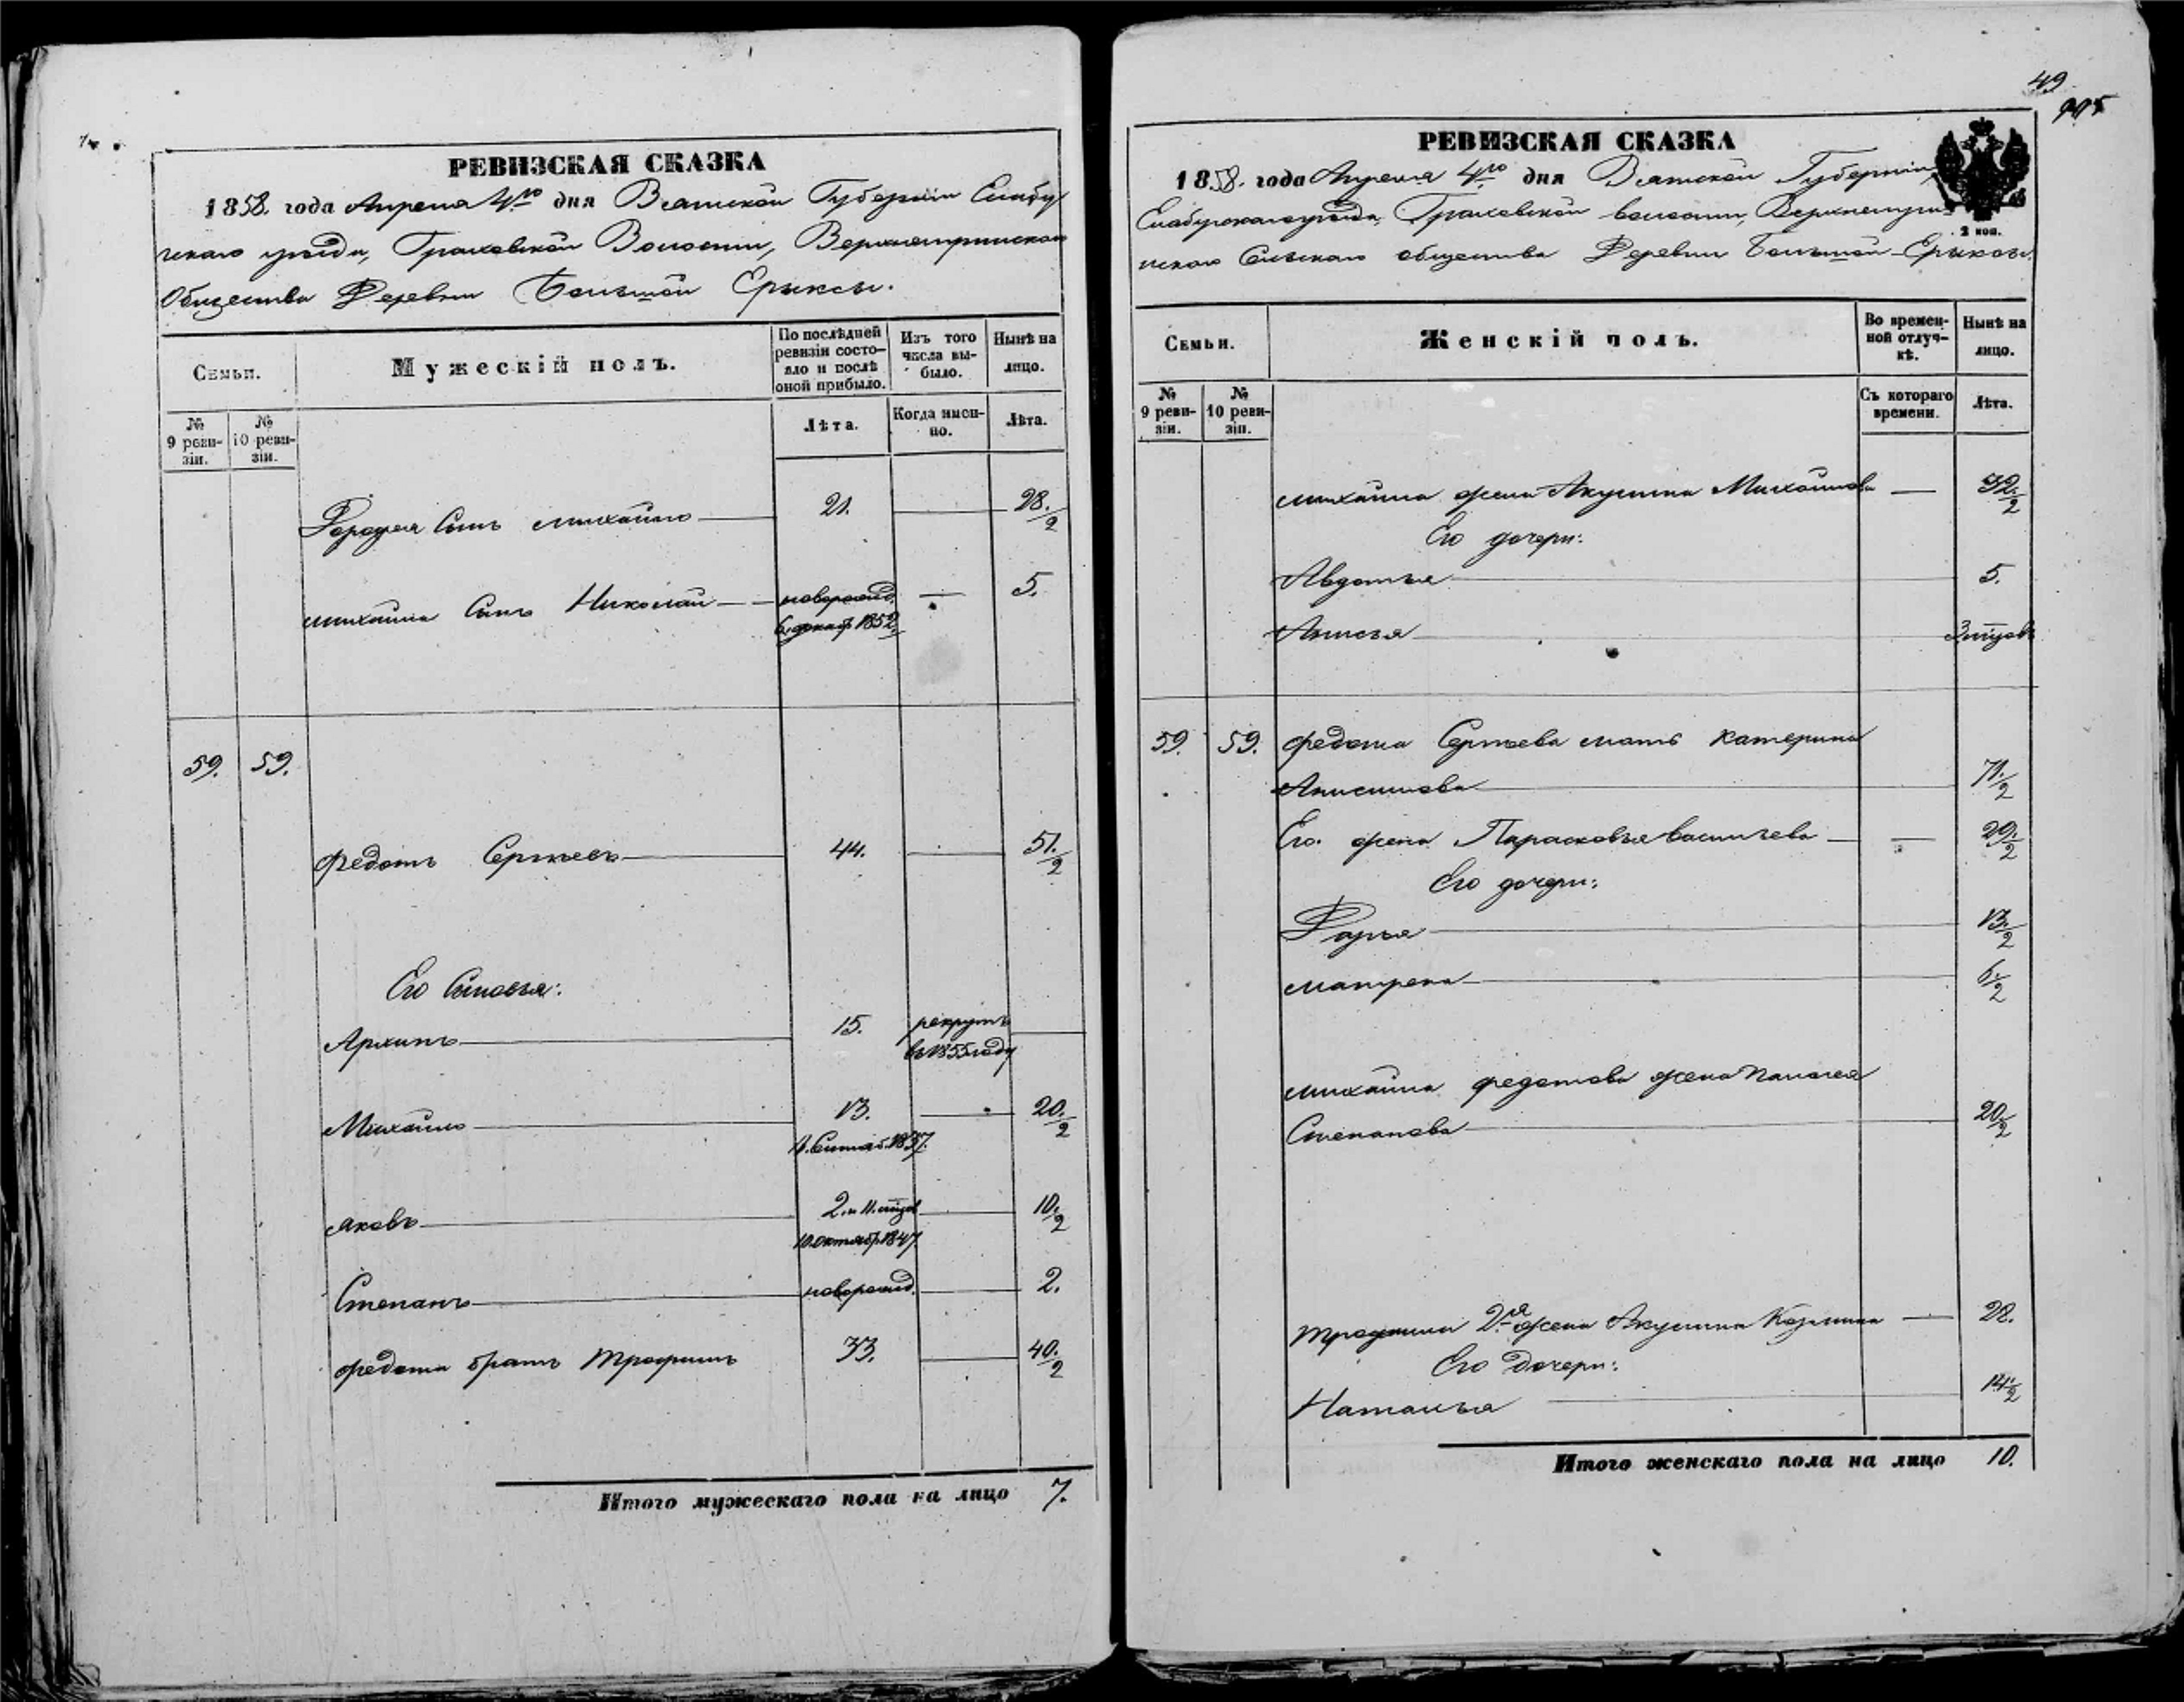 РЕВИЗСКАЯ СКАЗКА
1858. года Апреля 4го дня Вятской Губернiи Елабуж
скаго уѣзда, Граховской Волости,
Общества Деревни Большой Ерыксы.
Семьи.
Мужескiй полъ.
По послѣдней
ревизiи состо-
яло и послѣ
оной прибыло.
Изъ того
числа вы-
было.
Нынѣ на
лицо.
№
9 реви-
зiи.
№
10 реви-
зiи.
Лѣта.
Когда имен-
но.
Лѣта.
Сынъ Михайло 21. 28. 1/2
Михайла Сынъ Николай новорожд. 5.
6. декаб. 1852
59. 59.
Федотъ Сергѣевъ 44. 51. 1/2
Его Сыновья:
Архипъ 15. рекрутъ
въ 1855 году
Михайло 13. 20. 1/2
Яковъ 2. и 11. мѣцов 10. 1/2
10. октябр. 1847.
Степанъ новорожд. 2.
Федота братъ Трофимъ 33. 40. 1/2
Итого мужескаго пола на лицо 7.
49
РЕВИЗСКАЯ СКАЗКА
1858. года Апреля 4го дня Вятской Губернiи,
Елабужскаго уѣзда, Граховской волости,
Сельскаго общества Деревни Большой Ерыксы
2 коп.
Семьи.
Женскiй полъ.
Во времен-
ной отлуч-
кѣ.
Нынѣ на
лицо.
№
9 реви-
зiи.
№
10 реви-
зiи.
Съ котораго
времени.
Лѣта.
Михайла жена Акулина Михайлова 32. 1/2
Его дочери:
Авдотья 5.
Анисья 3 мѣцовъ
59. 59. Федота Сергѣева мать Катерина
Анисимова 71. 1/2
Его жена Парасковья Васильева 29. 1/2
Его дочери:
Дарья 13. 1/2
Матрена 6. 1/2
Михайла Федотова жена Палагея
Степанова 20. 1/2
Трофима 2я жена Акулина Козмина 28.
Его Дочери:
Наталья 14. 1/2
Итого женскаго пола на лицо 10.